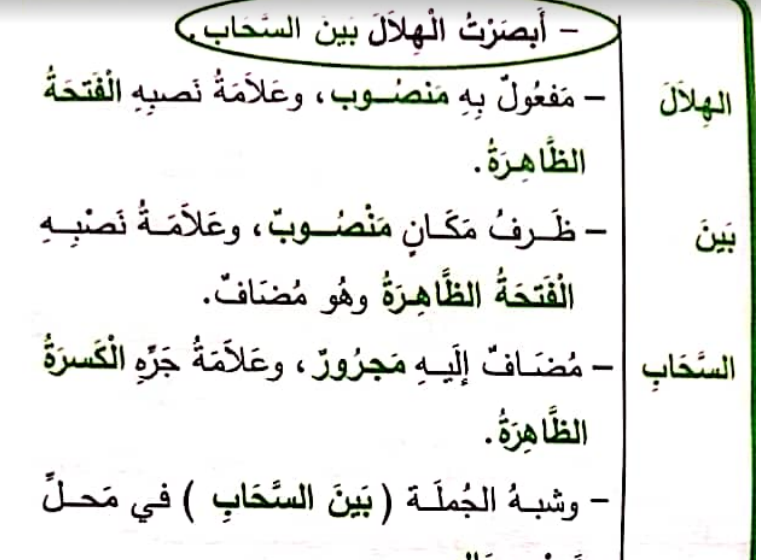 – أَبصَرْتُ الْهِلاَلَ بَينَ السَّحَابِ.
الهِلاَلَ – مَفعُولٌ بِهِ مَنصُوب، وعَلاَمَةُ نَصبِهِ الْفَتحَةُ
الظَّاهِرَةُ.
بَينَ – ظَرفُ مَكَانٍ مَنْصُوبٌ، وعَلاَمَةُ نَصْبِهِ
الْفَتَحَةُ الظَّاهِرَةُ وهُو مُضَافٌ.
السَّحَابِ – مُضَافٌ إِلَيهِ مَجرُورٌ، وعَلاَمَةُ جَرِّهِ الْكَسرَةُ
الظَّاهِرَةُ.
– وشبهُ الجُملَة ( بَينَ السَّحَابِ ) في مَحلِّ